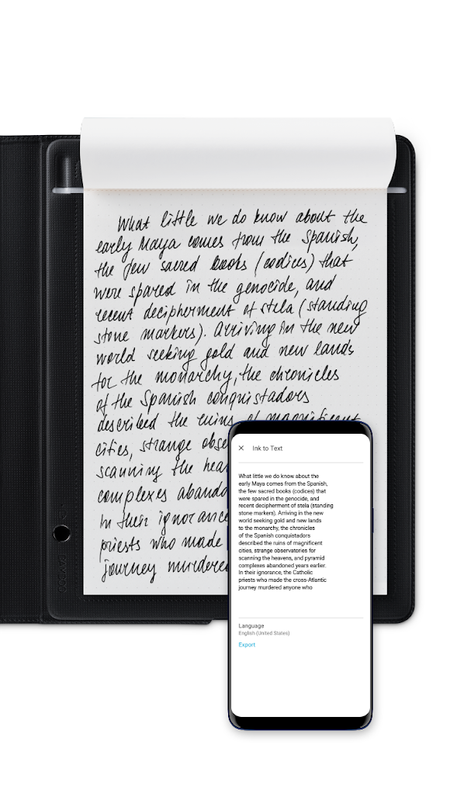 What little we do know about the
early Maya comes from the Spanish,
the few sacred books (codices) that
were spared in the genocide, and
recent decipherment of stela (standing
stone markers). Arriving in the new
world seeking gold and new lands
for the monarchy, the chronicles
of the Spanish conquistadors
described the ruins of magnificent
cities, strange obse
scanning the hea
complexes abando
In their ignorance
priests who made
journey murdered
× Ink to Text
What little we do know about the
early Maya comes from the Spanish,
the few sacred books (codices) that
were spared in the genocide, and
recent decipherment of stela (standing
stone markers). Arriving in the new
world seeking gold and new lands
to the monarchy, the chronicles
of the Spanish conquistadors
described the ruins of magnificent
cities, strange observatories for
scanning the heavens, and pyramid
complexes abandoned years earlier.
In their ignorance, the Catholic
priests who made the cross-Atlantic
journey murdered anyone who
Language
English (United States)
Export